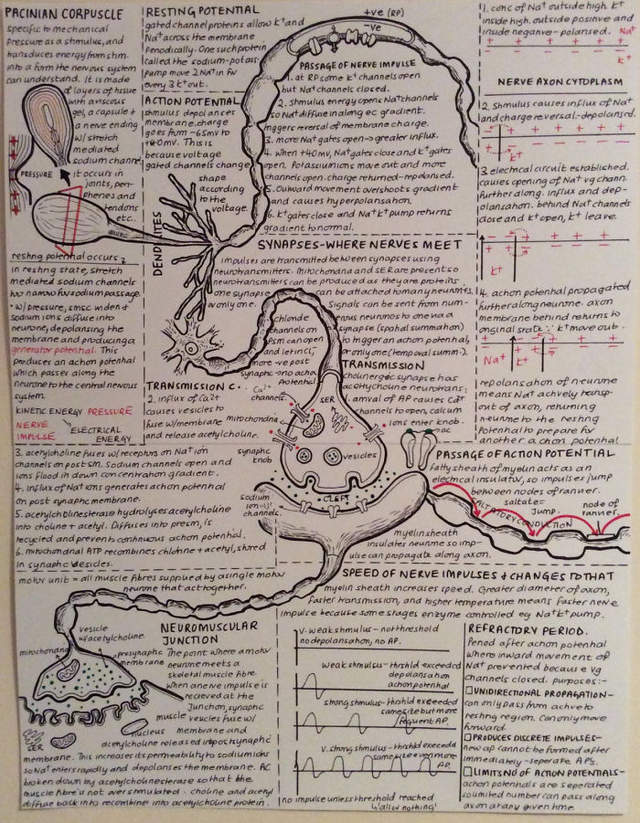 PACINIAN CORPUSCLE
specific to mechanical
pressure as a stimulus, and
transduces energy from stim.
into a form the nervous system
can understand. It is made
of layers of tissue
with a viscous
gel, a capsule +
a nerve ending
w/ stretch
mediated
sodium channel
it occurs in
joints,
and
tendons
etc..
PRESSURE
resting potential occurs,
in resting state, stretch
mediated sodium channels
too narrow for sodium passage.
• w/ pressure, smsc widen +
sodium ions diffuse into
neurone, depolarising the
membrane and producing a
generator potential. This
produces an action potential
which passes along the
neurone to the central nervous
system.
KINETIC ENERGY PRESSURE
NERVE IMPULSE
ELECTRICAL ENERGY
RESTING POTENTIAL
gated channel proteins allow K+ and
Na+ across the membrane
periodically. One such protein
called the sodium-potass.
pump move 2 Na+ in for
every 3 K+ out.
ACTION POTENTIAL
stimulus depolarises
membrane. charge
goes from -65mV to
+40mV. This is
because voltage
gated channels change
shape
according
to the
voltage.
DENDRITES
+ve (RP)
-ve
PASSAGE OF NERVE IMPULSE
1. at RP come K+ channels open
but Na+ channels closed.
2. Stimulus energy opens Na+ channels
so Na+ diffuse in along ec gradient.
triggers reversal of membrane charge.
3. more Na+ gates open → greater influx.
4. When +40mV, Na+ gates close and K+ gates
open. Potassium ions move out and more
channels open. charge returned - repolarised.
5. Outward movement overshoots gradient
and causes hyperpolarisation.
6. K+ gates close and Na+ K+ pump returns
gradient to normal.
1. conc of Na+ outside high. K+
inside high. outside positive and
inside negative - polarised. Na+
K+
NERVE AXON CYTOPLASM
2. Stimulus causes influx of Na+
and charge reversal - depolarised.
K+
3. electrical circuit established.
causes opening of Na+ vg chan
further along. influx and dep-
olarisation. behind Na+ channels
close and K+ open, K+ leave.
K+
4. action potential propagated
further along neurone. axon
membrane behind returns to
original state ∵ K+ move out.
Na+ K+
repolarisation of neurone
means Na+ actively transp.
out of axon, returning
neurone to the resting
potential to prepare for
another action potential
SYNAPSES - WHERE NERVES MEET
impulses are transmitted between synapses using
neurotransmitters. Mitochondria and SER are present so
neurotransmitters can be produced as they are proteins.
one synapse can be attached to many neurones,
or only one. Signals can be sent from num-
erous neurones to one via a
synapse (spatial summation)
to trigger an action potential,
or only one (temporal summ.).
chloride
channels on
psm can open
and let in Cl,
more -ve post
synaptic - no action
potential
TRANSMISSION
cholinergic synapse has
acetylcholine neurotrans:
1. arrival of AP causes Ca2+
channels to open, calcium
ions enter knob.
TRANSMISSION C..
2. influx of Ca2+
causes vesicles to
fuse w/ membrane
and release acetylcholine.
Ca2+
channels
mitochondria
SER
synaptic
knob
vesicles
CLEFT
sodium
ion
channels
3. acetylcholine fuses w/ receptors on Na+ ion
channels on post sm. Sodium channels open and
ions flood in down concentration gradient.
4. influx of Na+ ions generates action potential
on post synaptic membrane.
5. acetylcholinesterase hydrolyses acetylcholine
into choline + acetyl. Diffuses into presm, is
recycled and prevents continuous action potential.
6. mitochondrial ATP recombines choline + acetyl, stored
in synaptic vesicles.
PASSAGE OF ACTION POTENTIAL
fatty sheath of myelin acts as an
electrical insulator, so impulses jump
between nodes of ranvier.
saltate =
jump.
node of
ranvier.
SALTATORY CONDUCTION
myelin sheath
insulates neurone so imp-
ulse can propagate along axon.
motor unit = all muscle fibres supplied by a single motor
neurone that act together.
SPEED OF NERVE IMPULSES + CHANGES TO THAT
myelin sheath increases speed. Greater diameter of axon,
faster transmission, and higher temperature means faster nerve
impulse because some stages enzyme controlled eg Na+ K+ pump.
NEUROMUSCULAR
JUNCTION
The point where a motor
neurone meets a
skeletal muscle fibre.
When a nerve impulse is
recieved at the
junction, synaptic
vesicles fuse w/
membrane and
acetylcholine released into postsynaptic
membrane. This increases its permeability to sodium ions
so Na+ enters rapidly and depolarises the membrane. AC
broken down by acetylcholinesterase so that the
muscle fibre's not over stimulated - choline and acetyl
diffuse back into recombine into acetylcholine protein.
vesicle
w/ acetylcholine
mitochondria
presynaptic
membrane
muscle
nucleus
SER
v. weak stimulus - no threshold
no depolarisation, no AP.
weak stimulus - thrshld exceeded
depolarisation
action potential
strong stimulus - thrshld exceeded
same size but more
frequent AP.
v. strong stimulus - thrshld exceeded
same size even more
AP.
no impulse unless threshold reached
↳ 'all or nothing'
REFRACTORY PERIOD.
Period after action potential
where inward movement of
Na+ prevented because vg
channels closed. purposes:-
□ UNIDIRECTIONAL PROPAGATION-
can only pass from active to
resting region. Can only move
forward.
□ PRODUCES DISCRETE IMPULSES-
new ap cannot be formed after
immediately - seperate APs.
□ LIMITS NO. OF ACTION POTENTIALS-
action potentials are seperated
so limited number can pass along
axon at any given time.